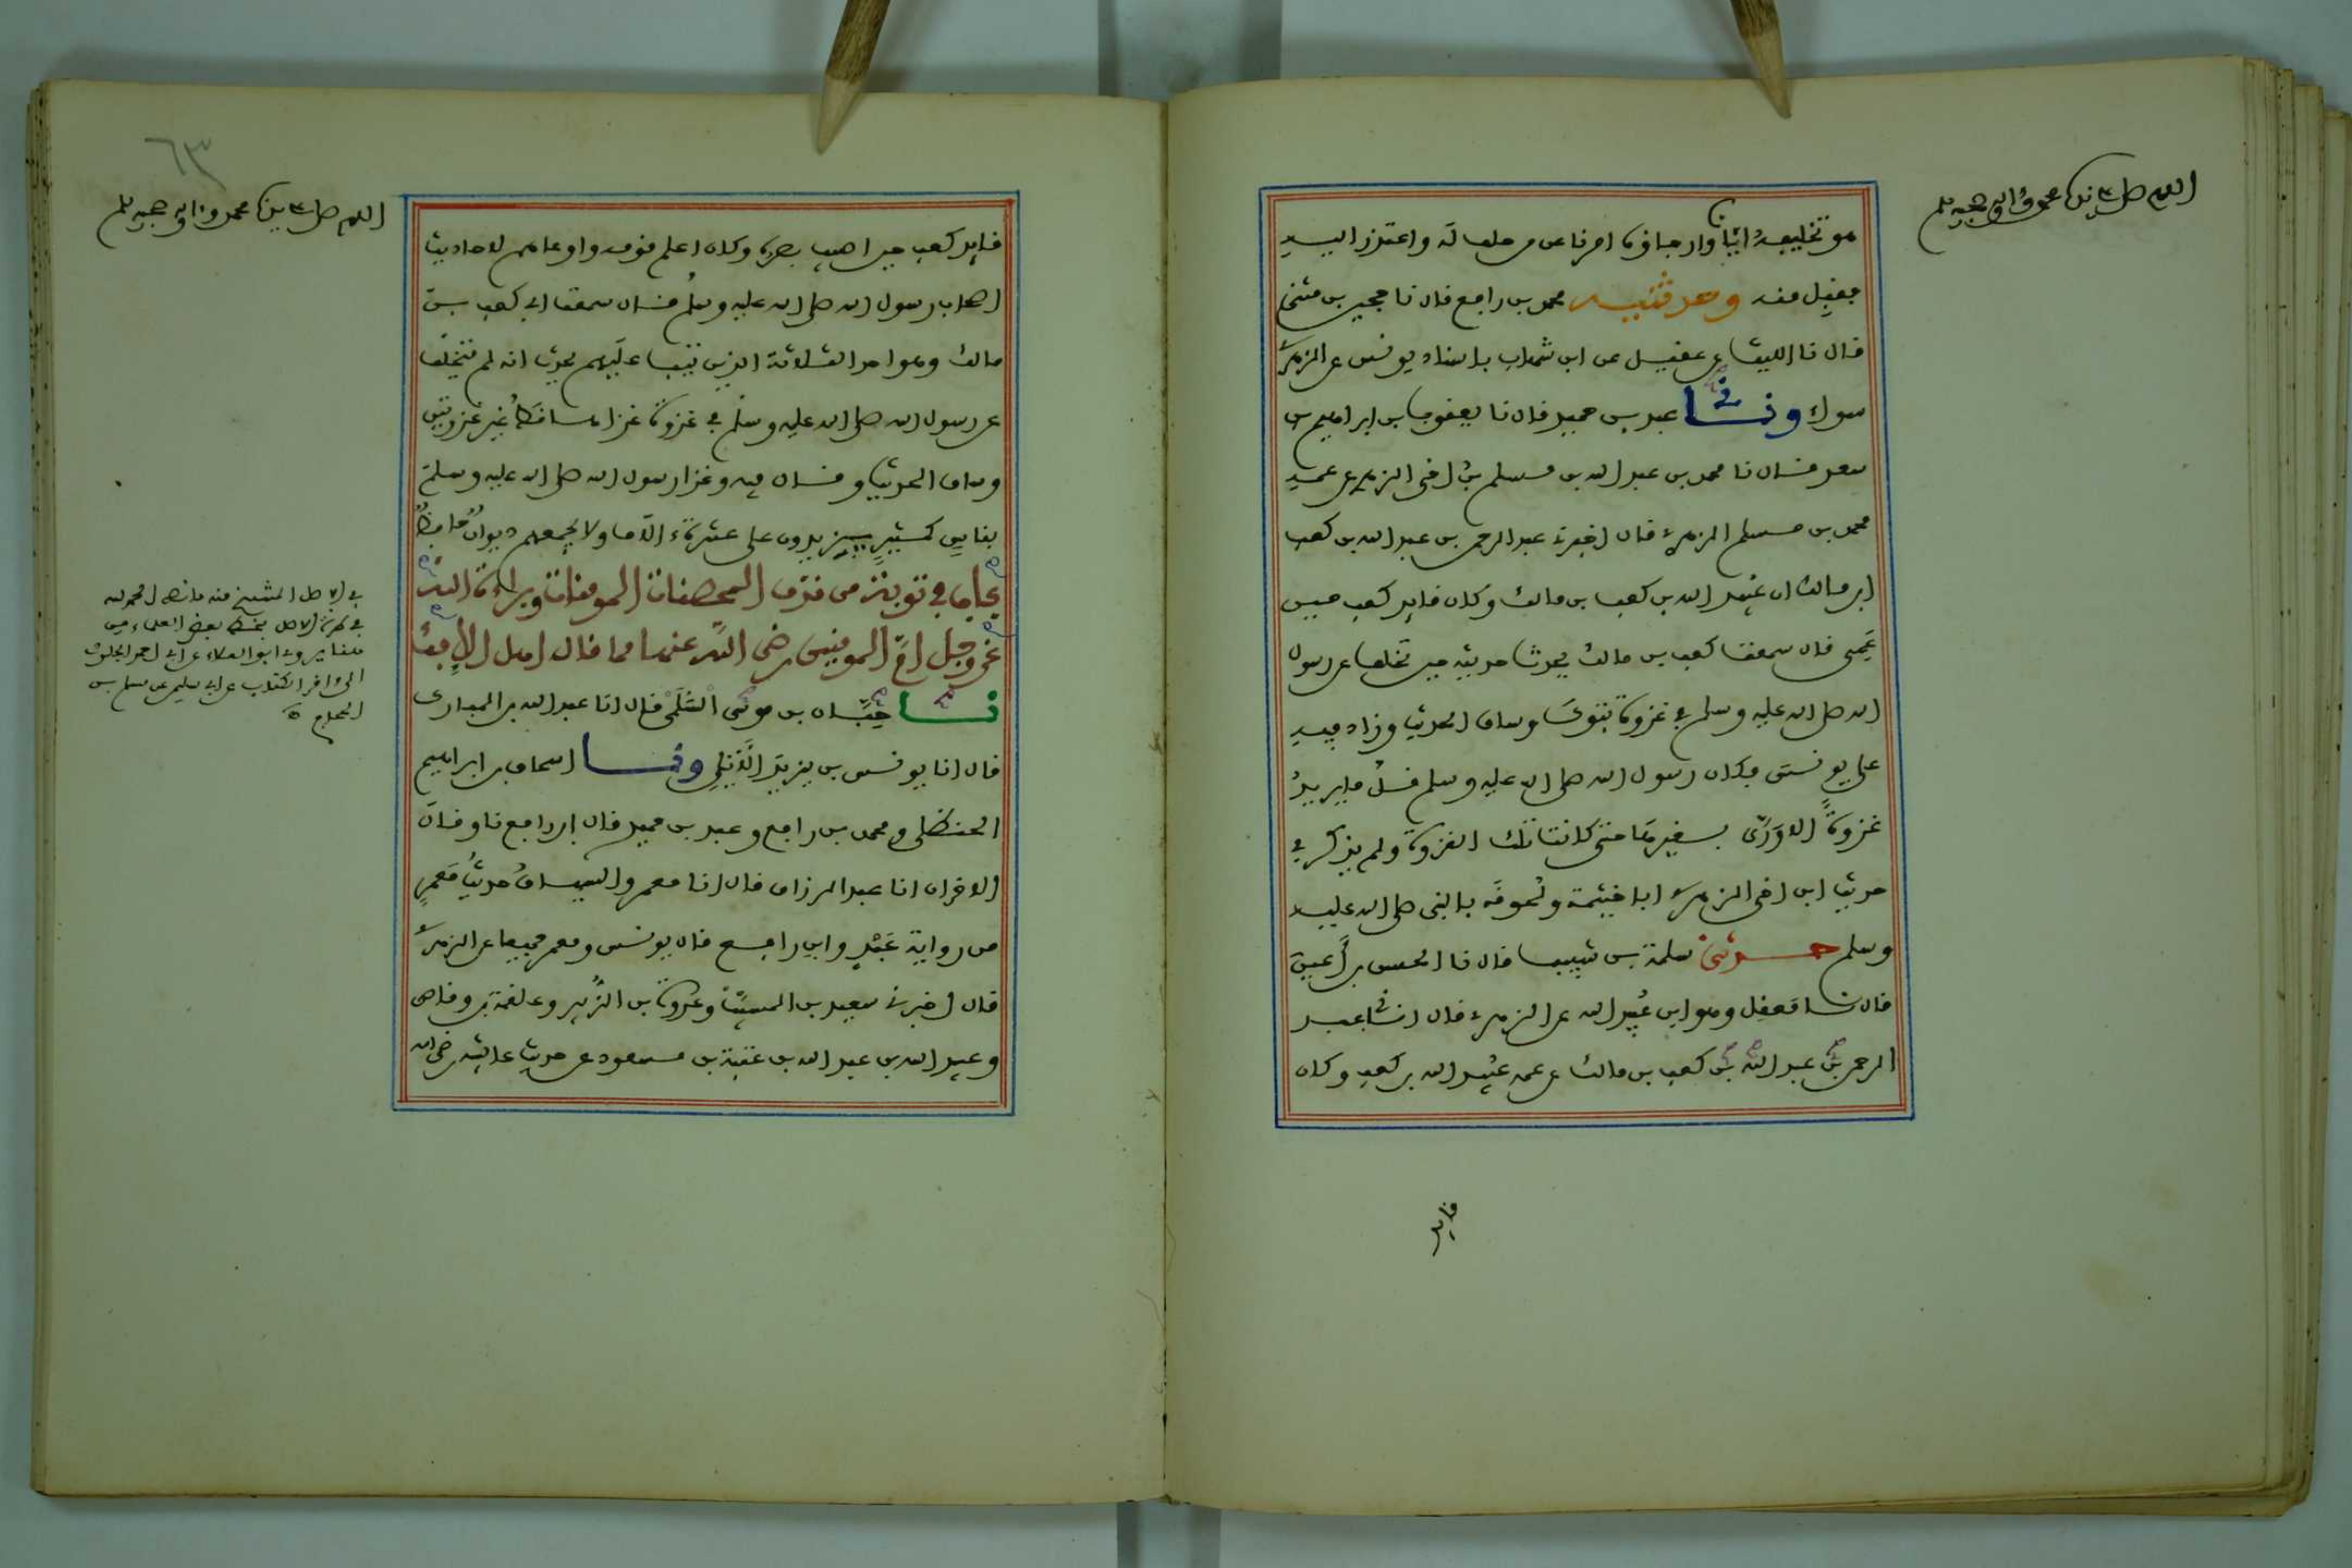 اللهم صل على سيدنا محمد وءاله وصحبه وسلم
هو تخليفه ايانا وارجاؤه امرنا عن من حلف له واعتذر اليه
فقبل منه وحدثنيه محمد بن رافع قال نا حجين بن مثنى
قال نا الليث عن عقيل عن ابن شهاب باسناد يونس عن الزهري
سواء ونا عبد بن حميد قال نا يعقوب بن ابراهيم بن
سعد قال نا محمد بن عبد الله بن مسلم بن اخي الزهري عن عمه
محمد بن مسلم الزهري قال اخبرني عبد الرحمن بن عبد الله بن كعب
ابن مالك ان عبيد الله بن كعب بن مالك وكان قايد كعب حين
عمي قال سمعت كعب بن مالك يحدث حديثه حين تخلف عن رسول
الله صلى الله عليه وسلم في غزوة تبوك وساق الحديث وزاد فيه
على يونس فكان رسول الله صلى الله عليه وسلم قل ما يريد
غزوة الا ورى بغيرها حتى كانت تلك الغزوة ولم يذكر في
حديث ابن اخي الزهري ابا خيثمة ولحوقه بالنبي صلى الله عليه
وسلم حدثني سلمة بن شبيب قال نا الحسن بن اعين
قال نا معقل وهو ابن عبيد الله عن الزهري قال اخبرني عبد
الرحمن بن عبد الله بن كعب بن مالك عن عمه عبيد الله بن كعب وكان
قايد
٦٣
اللهم صل على سيدنا محمد وءاله وصحبه وسلم
قايد كعب حين اصيب بصره وكان اعلم قومه واوعاهم لاحاديث
اصحاب رسول الله صلى الله عليه وسلم قال سمعت ابي كعب بن
مالك وهو احد الثلاثة الذين تيب عليهم يحدث انه لم يتخلف
عن رسول الله صلى الله عليه وسلم في غزوة غزاها قط غير غزوتين
وساق الحديث وقال فيه وغزا رسول الله صلى الله عليه وسلم
بناس كثير يزيدون على عشرة ءالاف ولا يجمعهم ديوان حافظ
باب في توبة من قذف المحصنات المومنات وبراءة الله
عز وجل ام المومنين رضي الله عنها مما قال اهل الافك
نا حبان بن موسى السلمي قال انا عبد الله بن المبارك
قال انا يونس بن يزيد الايلي ونا اسحاق بن ابراهيم
الحنظلي ومحمد بن رافع وعبد بن حميد قال ابن رافع نا وقال
الاخران انا عبد الرزاق قال انا معمر والسياق حديث معمر
من رواية عبد وابن رافع قال يونس ومعمر جميعا عن الزهري
قال اخبرني سعيد بن المسيب وعروة بن الزبير وعلقمة بن وقاص
وعبيد الله بن عبد الله بن عتبة بن مسعود عن حديث عائشة رضي الله
في الاصل المنتسخ منه ما نصه الحمد لله
في طرة الاصل بخط بعض العلماء من
هنا يروي ابو العلاء عن ابي احمد الجلودي
الى ءاخر الكتاب عن ابي سفين عن مسلم بن
الحجاج